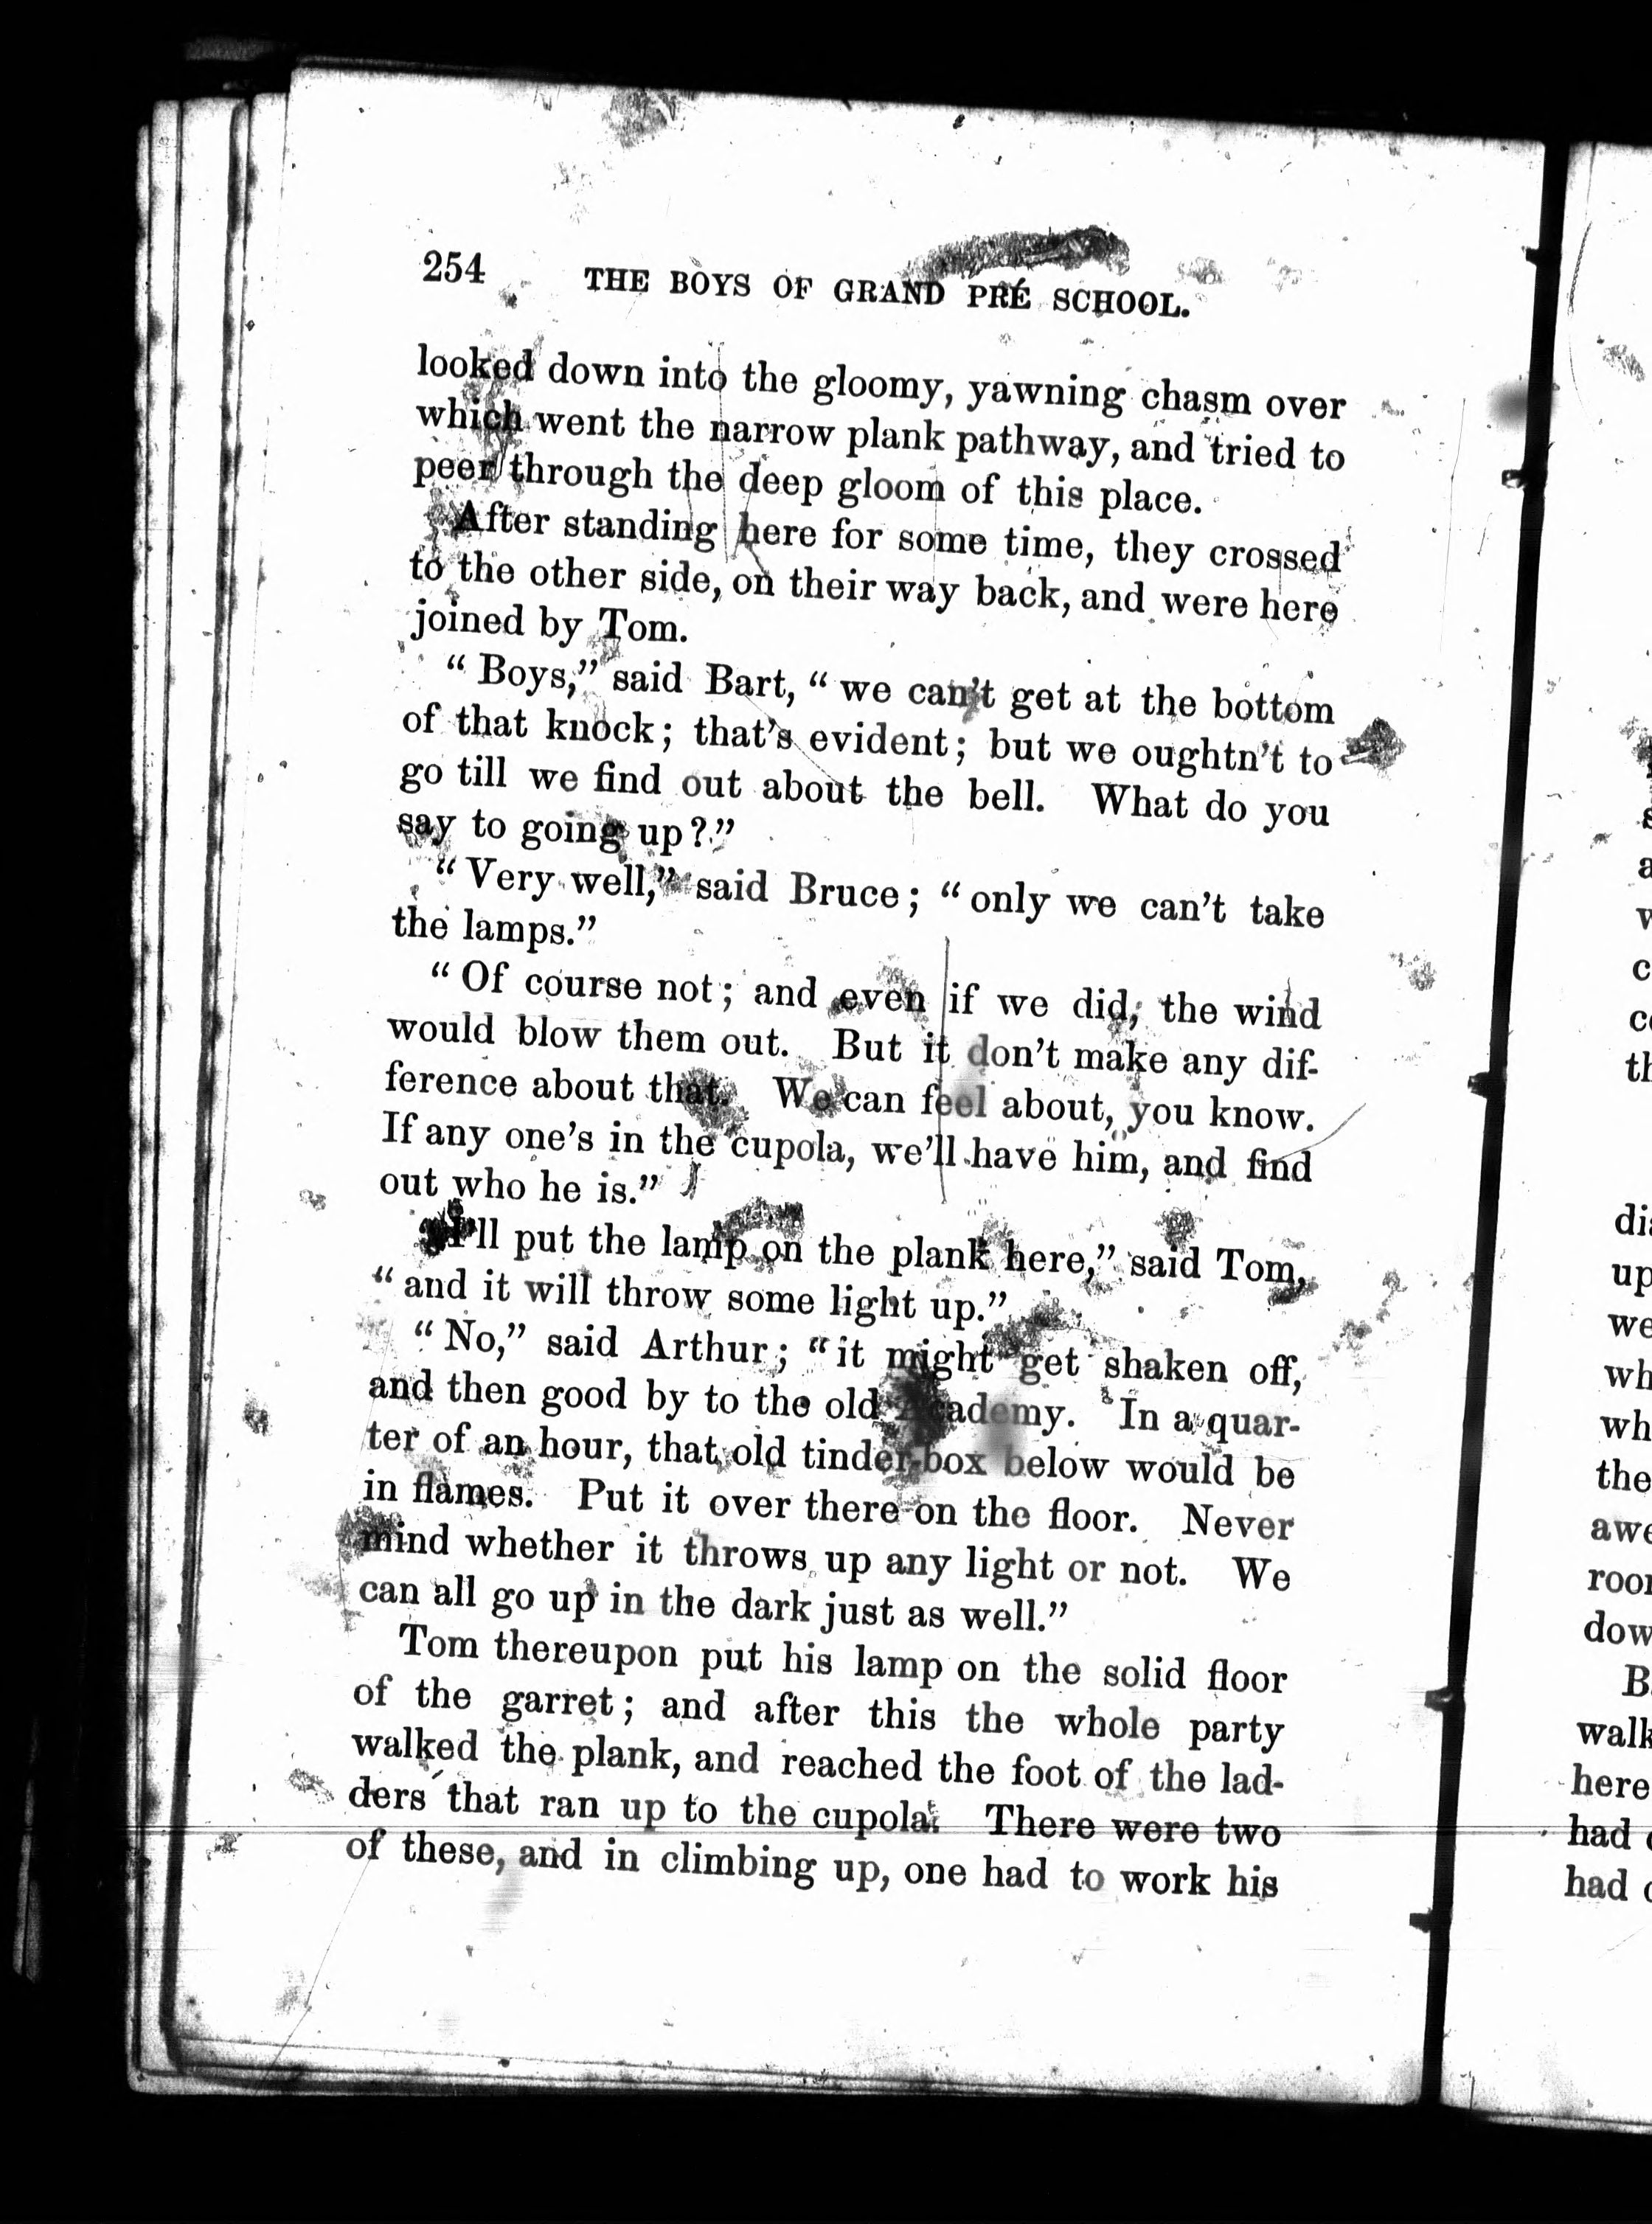 254 THE BOYS OF GRAND PRÉ SCHOOL.
looked down into the gloomy, yawning chasm over
which went the narrow plank pathway, and tried to
peer through the deep gloom of this place.
After standing here for some time, they crossed
to the other side, on their way back, and were here
joined by Tom.
“Boys,” said Bart, “we can’t get at the bottom
of that knock; that’s evident; but we oughtn’t to
go till we find out about the bell. What do you
say to going up?”
“Very well,” said Bruce; “only we can’t take
the lamps.”
“Of course not; and even if we did, the wind
would blow them out. But it don’t make any dif-
ference about that. We can feel about, you know.
If any one’s in the cupola, we’ll have him, and find
out who he is.”
“I’ll put the lamp on the plank here,” said Tom,
“and it will throw some light up.”
“No,” said Arthur; “it might get shaken off,
and then good by to the old Academy. In a quar-
ter of an hour, that old tinder-box below would be
in flames. Put it over there on the floor. Never
mind whether it throws up any light or not. We
can all go up in the dark just as well.”
Tom thereupon put his lamp on the solid floor
of the garret; and after this the whole party
walked the plank, and reached the foot of the lad-
ders that ran up to the cupola. There were two
of these, and in climbing up, one had to work his
up
the
here
had
had